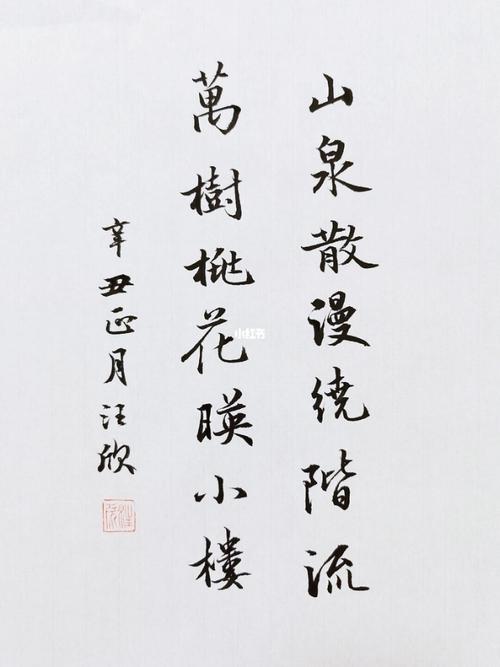 山泉散漫繞階流
萬樹桃花暎小樓
辛丑正月汪欣
小红书